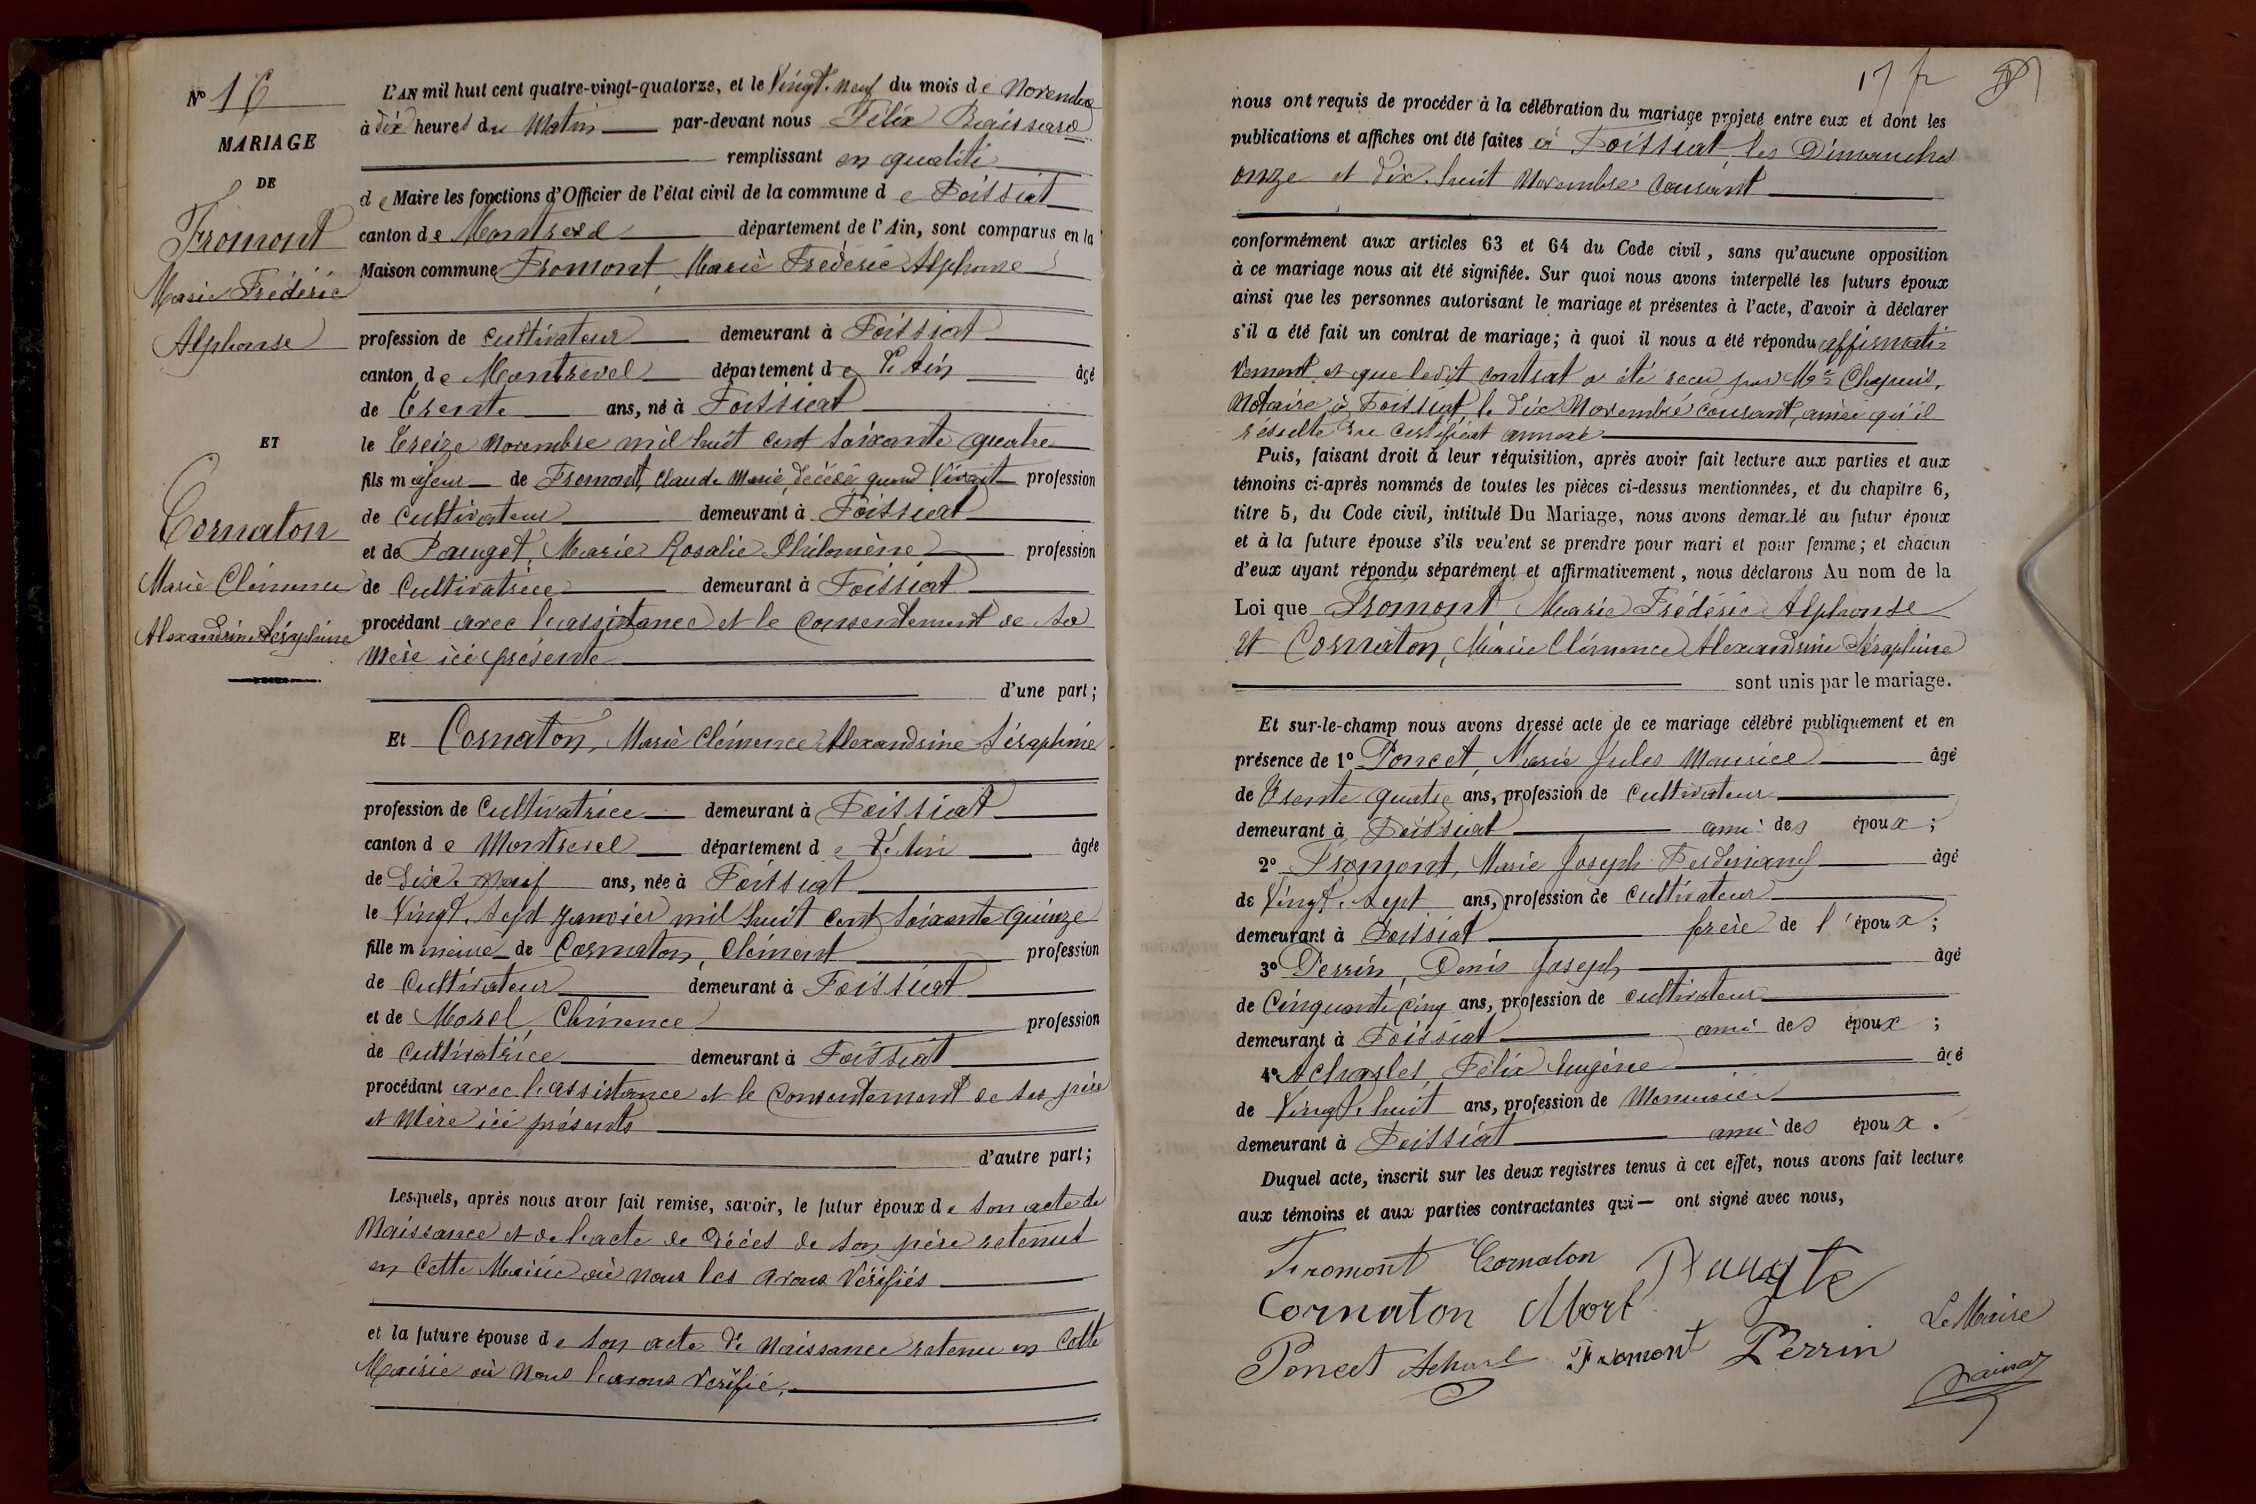 N° 16
MARIAGE
DE
Fromont
Marie Frédéric
Alphonse
ET
Cornaton
Marie Clémence
Alexandrine Séraphine
L'AN mil huit cent quatre-vingt-quatorze, et le Vingt-neuf du mois de Novembre
à dix heures du Matin par-devant nous Félix
remplissant en qualité
de Maire les fonctions d'Officier de l'état civil de la commune de Foissiat
canton de Montrevel département de l'Ain, sont comparus en la
Maison commune Fromont, Marie Frédéric Alphonse
profession de cultivateur demeurant à Foissiat
canton de Montrevel département de l'Ain âgé
de trente ans, né à Foissiat
le treize novembre mil huit cent soixante quatre
fils majeur de Fromont, Claude Marie, décédé quand vivait profession
de cultivateur demeurant à Foissiat
et de Pauget, Marie Rosalie Philomène profession
de Cultivatrice demeurant à Foissiat
procédant avec l'assistance et le consentement de sa
Mère ici présente
d'une part;
Et Cornaton, Marie Clémence Alexandrine Séraphine
profession de Cultivatrice demeurant à Foissiat
canton de Montrevel département de l'Ain âgée
de dix-neuf ans, née à Foissiat
le Vingt-sept Janvier mil huit cent soixante quinze
fille mineure de Cornaton, Clément profession
de Cultivateur demeurant à Foissiat
et de Morel, Clémence profession
de cultivatrice demeurant à Foissiat
procédant avec l'assistance et le Consentement de ses père
et Mère ici présents
d'autre part;
Lesquels, après nous avoir fait remise, savoir, le futur époux de son acte de
Naissance et de l'acte de décès de son père retenus
en cette Mairie où nous les avons vérifiés
et la future épouse de son acte de Naissance retenu en cette
Mairie où nous l'avons vérifié.
17
nous ont requis de procéder à la célébration du mariage projeté entre eux et dont les
publications et affiches ont été faites à Foissiat, les Dimanches
onze et dix-huit Novembre courant
conformément aux articles 63 et 64 du Code civil, sans qu'aucune opposition
à ce mariage nous ait été signifiée. Sur quoi nous avons interpellé les futurs époux
ainsi que les personnes autorisant le mariage et présentes à l'acte, d'avoir à déclarer
s'il a été fait un contrat de mariage; à quoi il nous a été répondu affirmati-
vement et que ledit contrat a été reçu par Me Chapuis,
Notaire à Foissiat, le dix Novembre courant, ainsi qu'il
résulte du certificat annexé
Puis, faisant droit à leur réquisition, après avoir fait lecture aux parties et aux
témoins ci-après nommés de toutes les pièces ci-dessus mentionnées, et du chapitre 6,
titre 5, du Code civil, intitulé Du Mariage, nous avons demandé au futur époux
et à la future épouse s'ils veulent se prendre pour mari et pour femme; et chacun
d'eux ayant répondu séparément et affirmativement, nous déclarons Au nom de la
Loi que Fromont, Marie Frédéric Alphonse
et Cornaton, Marie Clémence Alexandrine Séraphine
sont unis par le mariage.
Et sur-le-champ nous avons dressé acte de ce mariage célébré publiquement et en
présence de 1° Poncet, Marie Jules Maurice âgé
de trente quatre ans, profession de cultivateur
demeurant à Foissiat ami des époux;
2° Fromont, Marie Joseph Ferdinand âgé
de Vingt-sept ans, profession de cultivateur
demeurant à Foissiat frère de l'époux;
3° Perrin, Denis Joseph âgé
de Cinquante cinq ans, profession de cultivateur
demeurant à Foissiat ami des époux;
4° Acharles, Félix Eugène âgé
de Vingt-huit ans, profession de Menuisier
demeurant à Foissiat ami des époux.
Duquel acte, inscrit sur les deux registres tenus à cet effet, nous avons fait lecture
aux témoins et aux parties contractantes qui — ont signé avec nous,
Fromont Cornaton
Cornaton Morel
Le Maire
Poncet Fromont Perrin